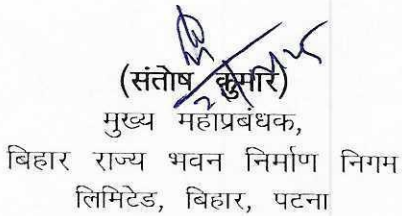 (संतोष कुमार)
मुख्य महाप्रबंधक,
बिहार राज्य भवन निर्माण निगम
लिमिटेड, बिहार, पटना